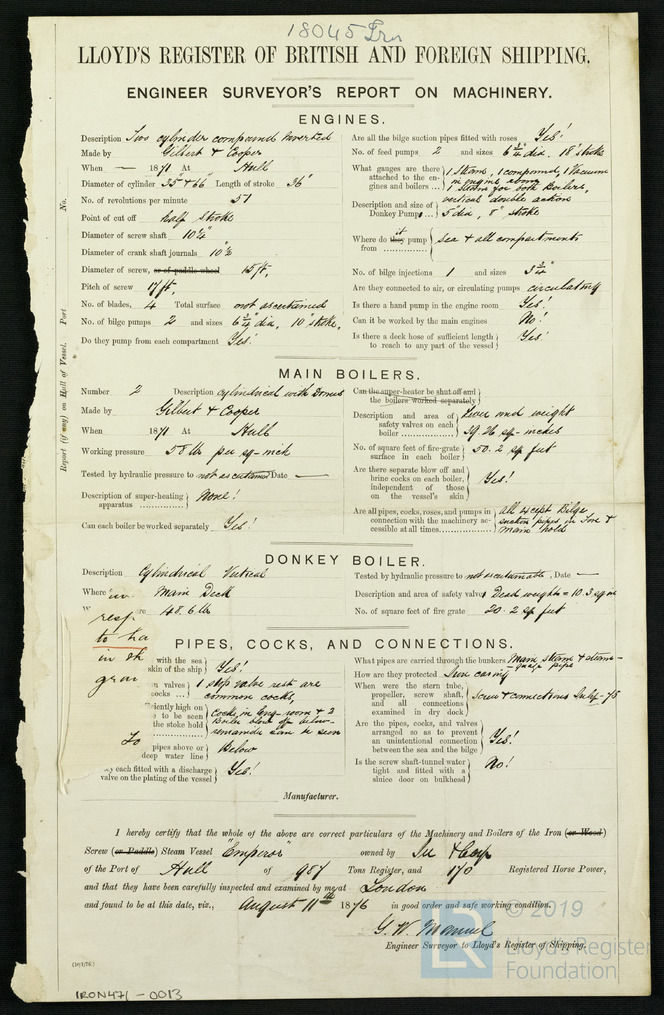 18045 Irn
LLOYD'S REGISTER OF BRITISH AND FOREIGN SHIPPING.
ENGINEER SURVEYOR'S REPORT ON MACHINERY.
ENGINES.
Description Two cylinder compound Inverted
Made by Gilbert & Cooper
When — 1871 At Hull
Diameter of cylinder 35" & 66" Length of stroke 36"
No. of revolutions per minute 51
Point of cut off half stroke
Diameter of screw shaft 10¼
Diameter of crank shaft journals
Diameter of screw, or of paddle wheel 15 ft,
Pitch of screw 17 ft,
No. of blades, 4 Total surface not ascertained
No. of bilge pumps 2 and sizes 6¾" dia, 10" stroke,
Do they pump from each compartment Yes!
Are all the bilge suction pipes fitted with roses Yes!
No. of feed pumps 2 and sizes 6¾" dia. 18" stroke
What gauges are there attached to the engines and boilers ... 1 Steam, 1 compound, 1 Vacuum
in engine room
1 Steam for both Boilers,
Description and size of Donkey Pumps ... vertical double action
5" dia, 8" stroke
Where do they it pump from sea & all compartments
No. of bilge injections 1 and sizes 3¾"
Are they connected to air, or circulating pumps circulating
Is there a hand pump in the engine room Yes!
Can it be worked by the main engines No!
Is there a deck hose of sufficient length to reach to any part of the vessel Yes!
Report (if any) on Hull of Vessel. Port No.
MAIN BOILERS.
Number 2 Description cylindrical with Domes
Made by Gilbert & Cooper
When 1871 At Hull
Working pressure 58 lb per sq-inch
Tested by hydraulic pressure to not ascertained Date —
Description of super-heating apparatus None!
Can each boiler be worked separately Yes!
Can the super-heater be shut off and the boilers worked separately
Description and area of safety valves on each boiler Lever and weight
sq-inches
No. of square feet of fire-grate surface in each boiler 50.2 sq feet
Are there separate blow off and brine cocks on each boiler, independent of those on the vessel's skin Yes!
Are all pipes, cocks, roses, and pumps in connection with the machinery accessible at all times all except Bilge
suction pipes in Fore &
main hold
DONKEY BOILER.
Description Cylindrical Vertical
Where Main Deck
48.6 lb
Tested by hydraulic pressure to not ascertainable, Date —
Description and area of safety valves Dead weights = 10.3 sq in
No. of square feet of fire grate 20.2 sq feet
resp
to ha
in th
gran
To
PIPES, COCKS, AND CONNECTIONS.
with the sea
skin of the ship Yes!
valves
cocks ... 1 stop valve rest are
common cocks,
iently high on
to be seen
the stoke hold cocks in Eng-room & 2
Boiler blow off below
remainder can be seen
pipes above or
deep water line Below
each fitted with a discharge
valve on the plating of the vessel Yes!
What pipes are carried through the bunkers Main steam & steam-
gauge pipe
How are they protected Iron casing
When were the stern tube, propeller, screw shaft, and all connections examined in dry dock Screw & connections July-75
Are the pipes, cocks, and valves arranged so as to prevent an unintentional connection between the sea and the bilge Yes!
Is the screw shaft-tunnel water tight and fitted with a sluice door on bulkhead No!
Manufacturer.
I hereby certify that the whole of the above are correct particulars of the Machinery and Boilers of the Iron (or Wood)
Screw (or Paddle) Steam Vessel "Emperor" owned by
of the Port of Hull of 987 Tons Register, and 170 Registered Horse Power,
and that they have been carefully inspected and examined by me at London
and found to be at this date, viz., August 11th 1876 in good order and safe working condition.
G. W. Manuel
Engineer Surveyor to Lloyd's Register of Shipping.
IRON471-0013
LR
© 2019
Lloyd's Register
Foundation